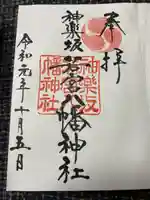 奉拝
神楽坂
若宮八幡神社
神楽坂
若宮八
幡神社
令和元年十月五日